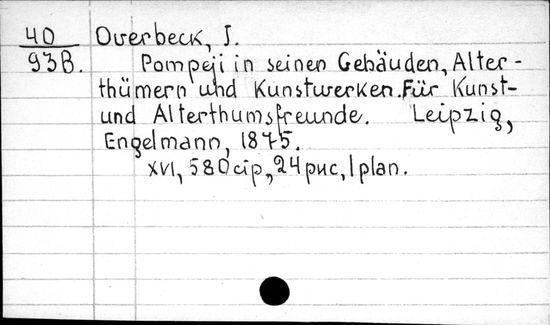 40 Overbeck, J.
93B. Pompeji in seinen Gebäuden, Alter-
thümern und Kunstwerken. Für Kunst-
und Alterthumsfreunde. Leipzig,
Engelmann, 1875.
XVI, 580 cip., 24 рис., 1 plan.